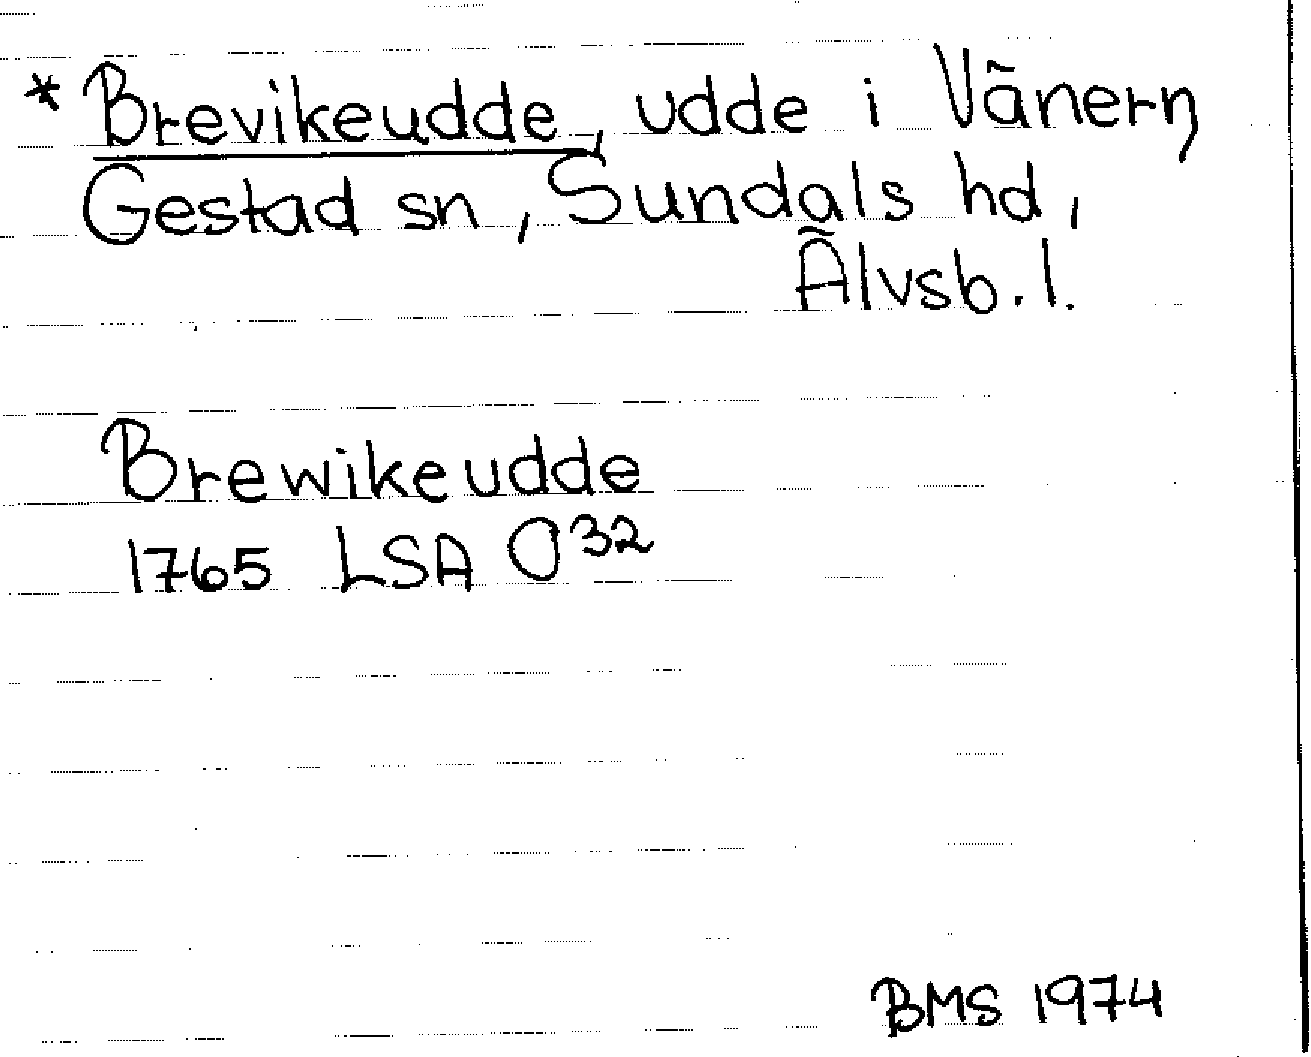 * Brevikeudde, udde i Vänern,
Gestad sn, Sundals hd,
Älvsb. l.
Brewikeudde
1765 LSA O32
BMS 1974